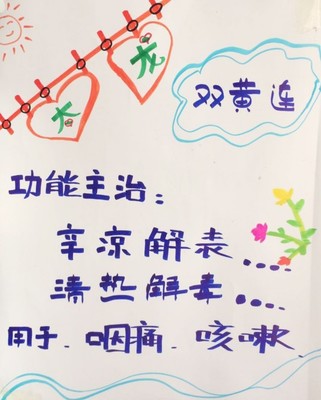 大 龙
双黄连
功能主治：
辛凉解表....
清热解毒....
用于.咽痛.咳嗽